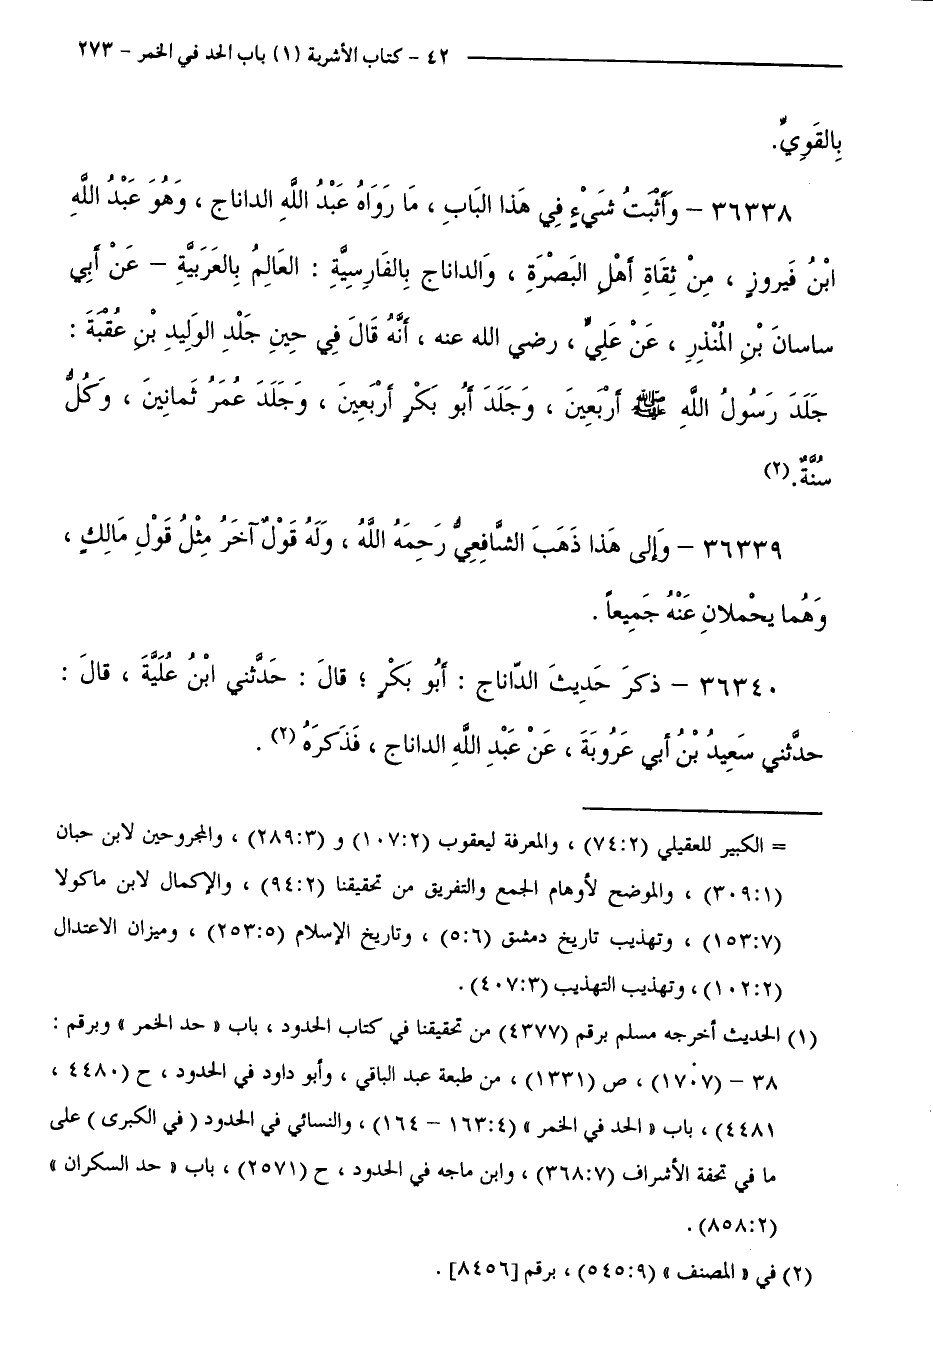 ٤٢ - كتاب الأشربة (١) باب الحد في الخمر - ٢٧٣
بِالقَوِيِّ.
٣٦٣٣٨ - وَأَثْبَتُ شَيْءٍ فِي هَذَا البَابِ ، مَا رَوَاهُ عَبْدُ اللَّهِ الداناج ، وَهُوَ عَبْدُ اللَّهِ
ابْنُ فَيروزٍ ، مِنْ ثِقَاةِ أَهْلِ البَصْرَةِ ، وَالداناج بِالفَارِسِيَّةِ : العَالِمُ بِالعَرَبَيَّةِ – عَنْ أَبِي
ساسانَ بْنِ المُنْذِرِ ، عَنْ عَلِيٍّ ، رضي الله عنه ، أَنَّهُ قَالَ فِي حِينِ جَلْدِ الوَلِيدِ بْنِ عُقْبَةَ :
جَلَدَ رَسُولُ اللَّهِ ﷺ أَرْبَعِينَ ، وَجَلَدَ أَبُو بَكْرٍ أَرْبَعِينَ ، وَجَلَدَ عُمَرُ ثَمانِينَ ، وَكُلٌّ
سُنَّةٌ.(٢)
٣٦٣٣٩ - وَإِلى هَذَا ذَهَبَ الشَّافِعِيُّ رَحِمَهُ اللَّهُ ، وَلَهُ قَوْلٌ آخَرُ مِثْلُ قَوْلِ مَالِكٍ ،
وَهُما يحْملانِ عَنْهُ جَمِيعاً .
٣٦٣٤٠ - ذكرَ حَدِيثَ الدّاناج : أَبُو بَكْرٍ ؛ قالَ : حَدَّثني ابْنُ عُلَيَّةَ ، قالَ :
حدَّثني سَعِيدُ بْنُ أَبي عَرُوبَةَ ، عَنْ عَبْدِ اللَّهِ الداناج ، فَذَكرَهُ (٢) .
= الكبير للعقيلي (٧٤:٢) ، والمعرفة ليعقوب (١٠٧:٢) و (٢٨٩:٣) ، والمجروحين لابن حبان
(٣٠٩:١) ، والموضح لأوهام الجمع والتفريق من تحقيقنا (٩٤:٢) ، والإكمال لابن ماكولا
(١٥٣:٧) ، وتهذيب تاريخ دمشق (٥:٦) ، وتاريخ الإسلام (٢٥٣:٥) ، وميزان الاعتدال
(١٠٢:٢) ، وتهذيب التهذيب (٤٠٧:٣) .
(١) الحديث أخرجه مسلم برقم (٤٣٧٧) من تحقيقنا في كتاب الحدود ، باب « حد الخمر » وبرقم :
٣٨ - (١٧٠٧) ، ص (١٣٣١) ، من طبعة عبد الباقي ، وأبو داود في الحدود ، ح (٤٤٨٠ ،
٤٤٨١) ، باب « الحد في الخمر » (١٦٣:٤ – ١٦٤) ، والنسائي في الحدود ( في الكبرى ) على
ما في تحفة الأشراف (٣٦٨:٧) ، وابن ماجه في الحدود ، ح (٢٥٧١) ، باب « حد السكران »
(٨٥٨:٢) .
(٢) في « المصنف » (٥٤٥:٩) ، برقم [٨٤٥٦] .